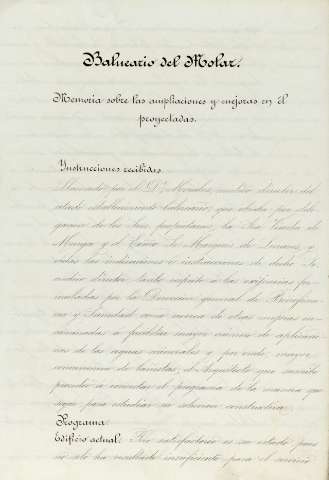 Balneario del Molar.
Memoria sobre las ampliaciones y mejoras en él
proyectadas.
Instrucciones recibidas
Llamado por el Dr. Morales, médico director del
actual establecimiento balneario, que obedece por dele
gación de los Sres propietarios, la Sra Viuda de
Murga y el Excmo Sr Marqués de Linares, y
oídas las indicaciones e instrucciones de dicho Sr
médico director, tanto respecto á las exigencias for
muladas por la Dirección general de Beneficen
cia y Sanidad como acerca de otras mejoras en
caminadas á facilitar mayor número de aplicacio
nes de las aguas minerales y por ende, mayor
concurrencia de bañistas, el Arquitecto que suscribe
procedió á concretar el programa de la manera que
sigue para estudiar su solución constructiva.
Programa
Edificio actual. No satisfactorio es su estado pues
no solo ha resultado insuficiente para el servicio